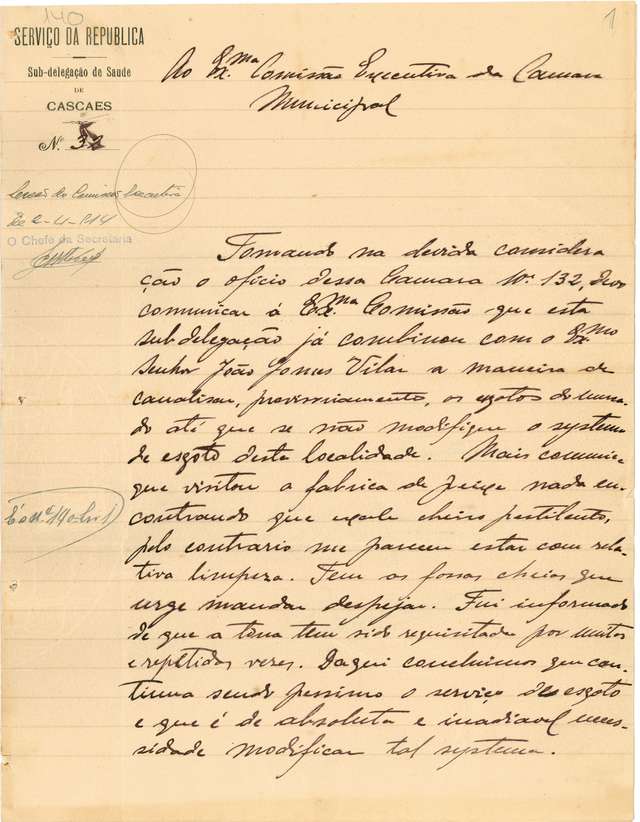 140
1
SERVIÇO DA REPUBLICA
Sub-delegação de Saude
DE
CASCAES
N.º 32
Ao Ex.ma Comissão Executiva da Camara
Municipal
Comissão Executiva
De 2-4-914
O Chefe da Secretaria
Tomando na devida considera
ção o oficio dessa Camara Nº 132, devo
comunicar á Ex.ma Comissão que esta
subdelegação já combinou com o Ex.mo
Senhor João Gomes Vilar a maneira de
canalisar, provisoriamente, os esgotos do merca-
do até que se não modifique o systema
de esgoto desta localidade. Mais comunico
que visitou a fabrica de nada en-
contrando que exale cheiro pestilento,
pelo contrario me pareceu estar com rela-
tiva limpeza. Tem as fossas cheias que
urge mandar despejar. Fui informado
de que a tina tem sido requisitada por muitas
e repetidas vezes. Daqui concluimos que con-
tinua sendo pessimo o serviço de esgoto
e que é de absoluta e inadiavel neces-
sidade modificar tal systema.